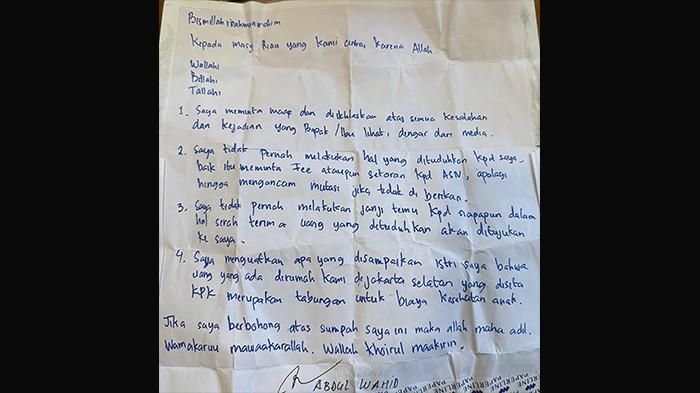 Bismillahirrahmanirrahim
Kepada masy Riau yang kami cintai karena Allah
Wallahi
Billahi
Tallahi
1. Saya meminta maaf dan diikhlaskan atas semua kesalahan
dan kejadian yang Bapak/Ibu lihat, dengar dari media.
2. Saya tidak pernah melakukan hal yang dituduhkan kpd saya.
baik itu meminta Fee ataupun setoran kpd ASN, apalagi
hingga mengancam mutasi jika tidak di berikan.
3. Saya tidak pernah melakukan janji temu kpd siapapun dalam
hal serah terima uang yang dituduhkan akan ditujukan
ke saya.
4. Saya menguatkan apa yang disampaikan istri saya bahwa
uang yang ada dirumah kami dijakarta selatan yang disita
KPK merupakan tabungan untuk biaya kesehatan anak.
Jika saya berbohong atas sumpah saya ini maka Allah maha adil.
Wamakaruu mawaakarallah. Wallah khoirul maakirin.
ABDUL WAHID
PAPERLINE
PAPERLINE